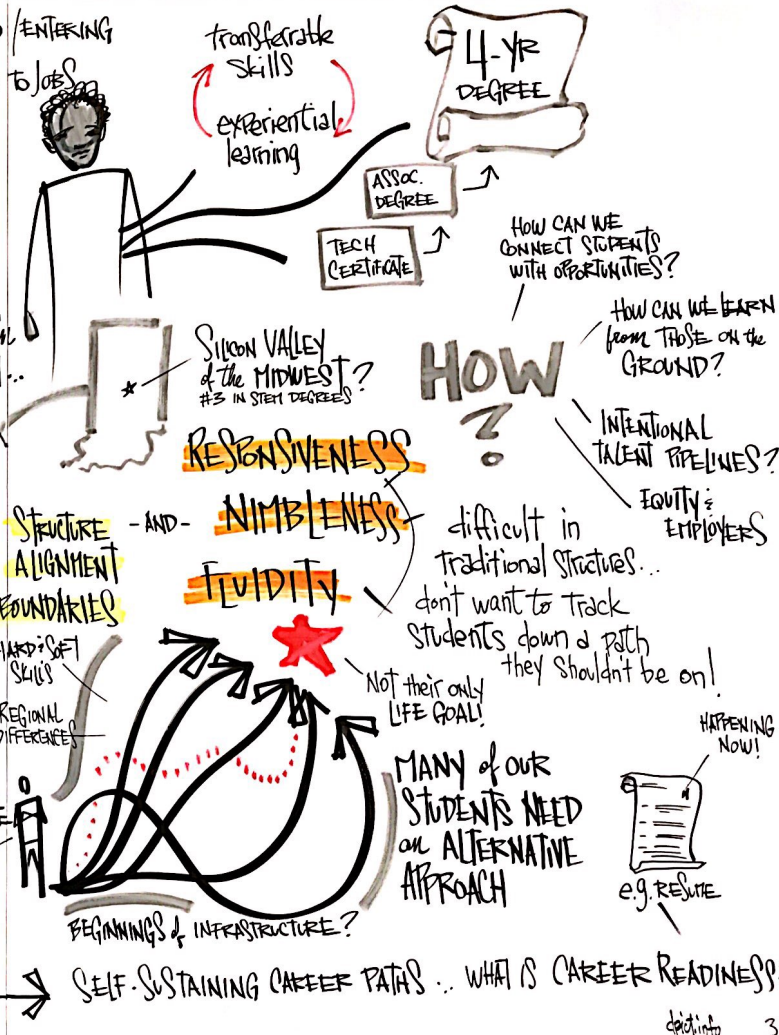 /ENTERING
to JOBS
transferrable
skills
experiential
learning
4-YR
DEGREE
ASSOC.
DEGREE
TECH
CERTIFICATE
HOW CAN WE
CONNECT STUDENTS
WITH OPPORTUNITIES?
HOW CAN WE LEARN
from THOSE ON the
GROUND?
HOW
?
INTENTIONAL
TALENT PIPELINES?
EQUITY &
EMPLOYERS
SILICON VALLEY
of the MIDWEST?
#3 IN STEM DEGREES
RESPONSIVENESS
STRUCTURE
ALIGNMENT
BOUNDARIES
- AND -
NIMBLENESS
FLUIDITY
difficult in
traditional structures...
don't want to track
students down a path
they shouldn't be on!
HARD & SOFT
SKILLS
REGIONAL
DIFFERENCES
Not their only
LIFE GOAL!
MANY of OUR
STUDENTS NEED
an ALTERNATIVE
APPROACH
HAPPENING
NOW!
e.g. RESUME
BEGINNINGS of INFRASTRUCTURE?
SELF-SUSTAINING CAREER PATHS... WHAT IS CAREER READINESS
3